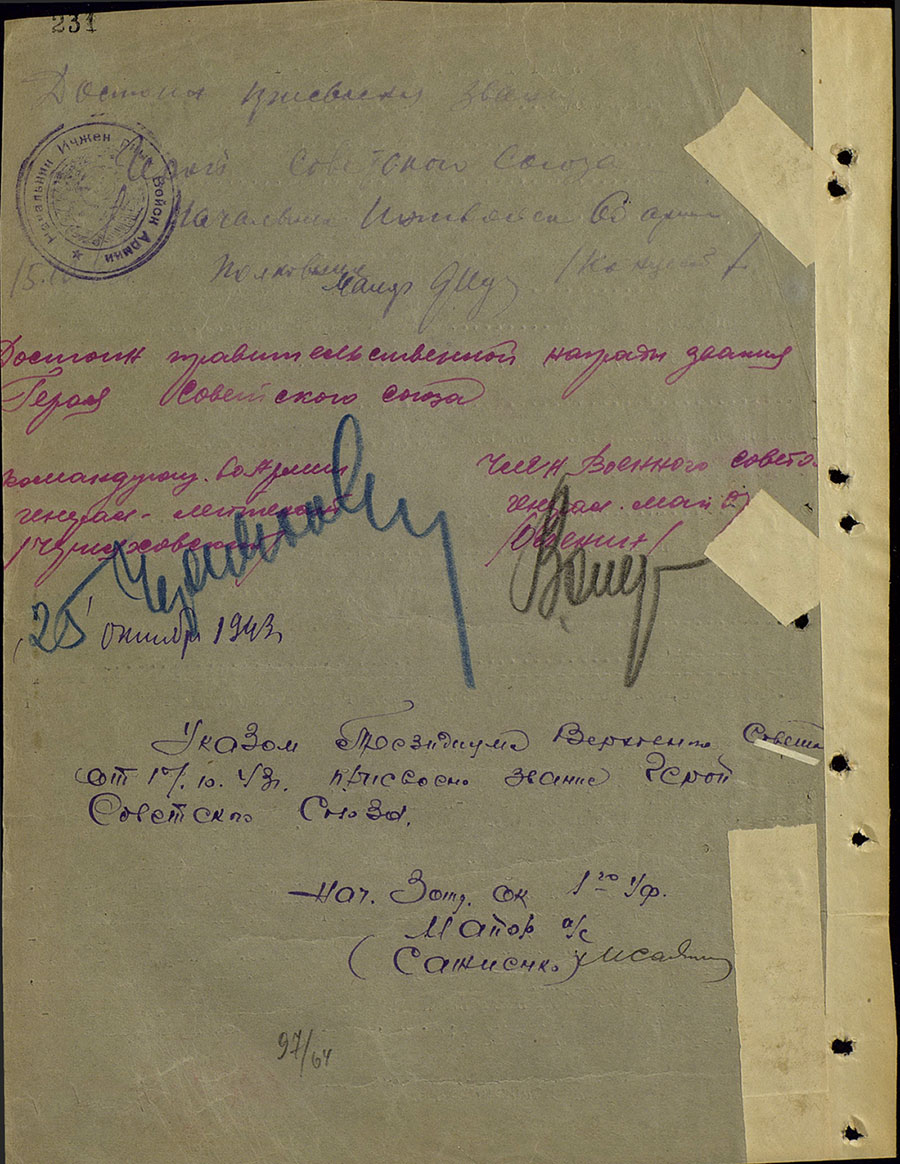 231
Достоин присвоения звания
Герой Советского Союза
Начальник Инжвойск 60 армии
Начальник Инжен Войск Армии
Полковник
Достоин правительственной награды звания
Героя Советского союза
Командующ. 60 Армии
генерал-лейтенант
/Черняховский/
Член Военного совета
генерал-майор
/Оленин/
25 октября 1943г
Указом Президиума Верховного Совета
от 17.10.43г. присвоено звание Герой
Советского Союза.
Нач. 3 отд. ок 1го Уф.
Майор а/с
(Сажиенко)
97/64